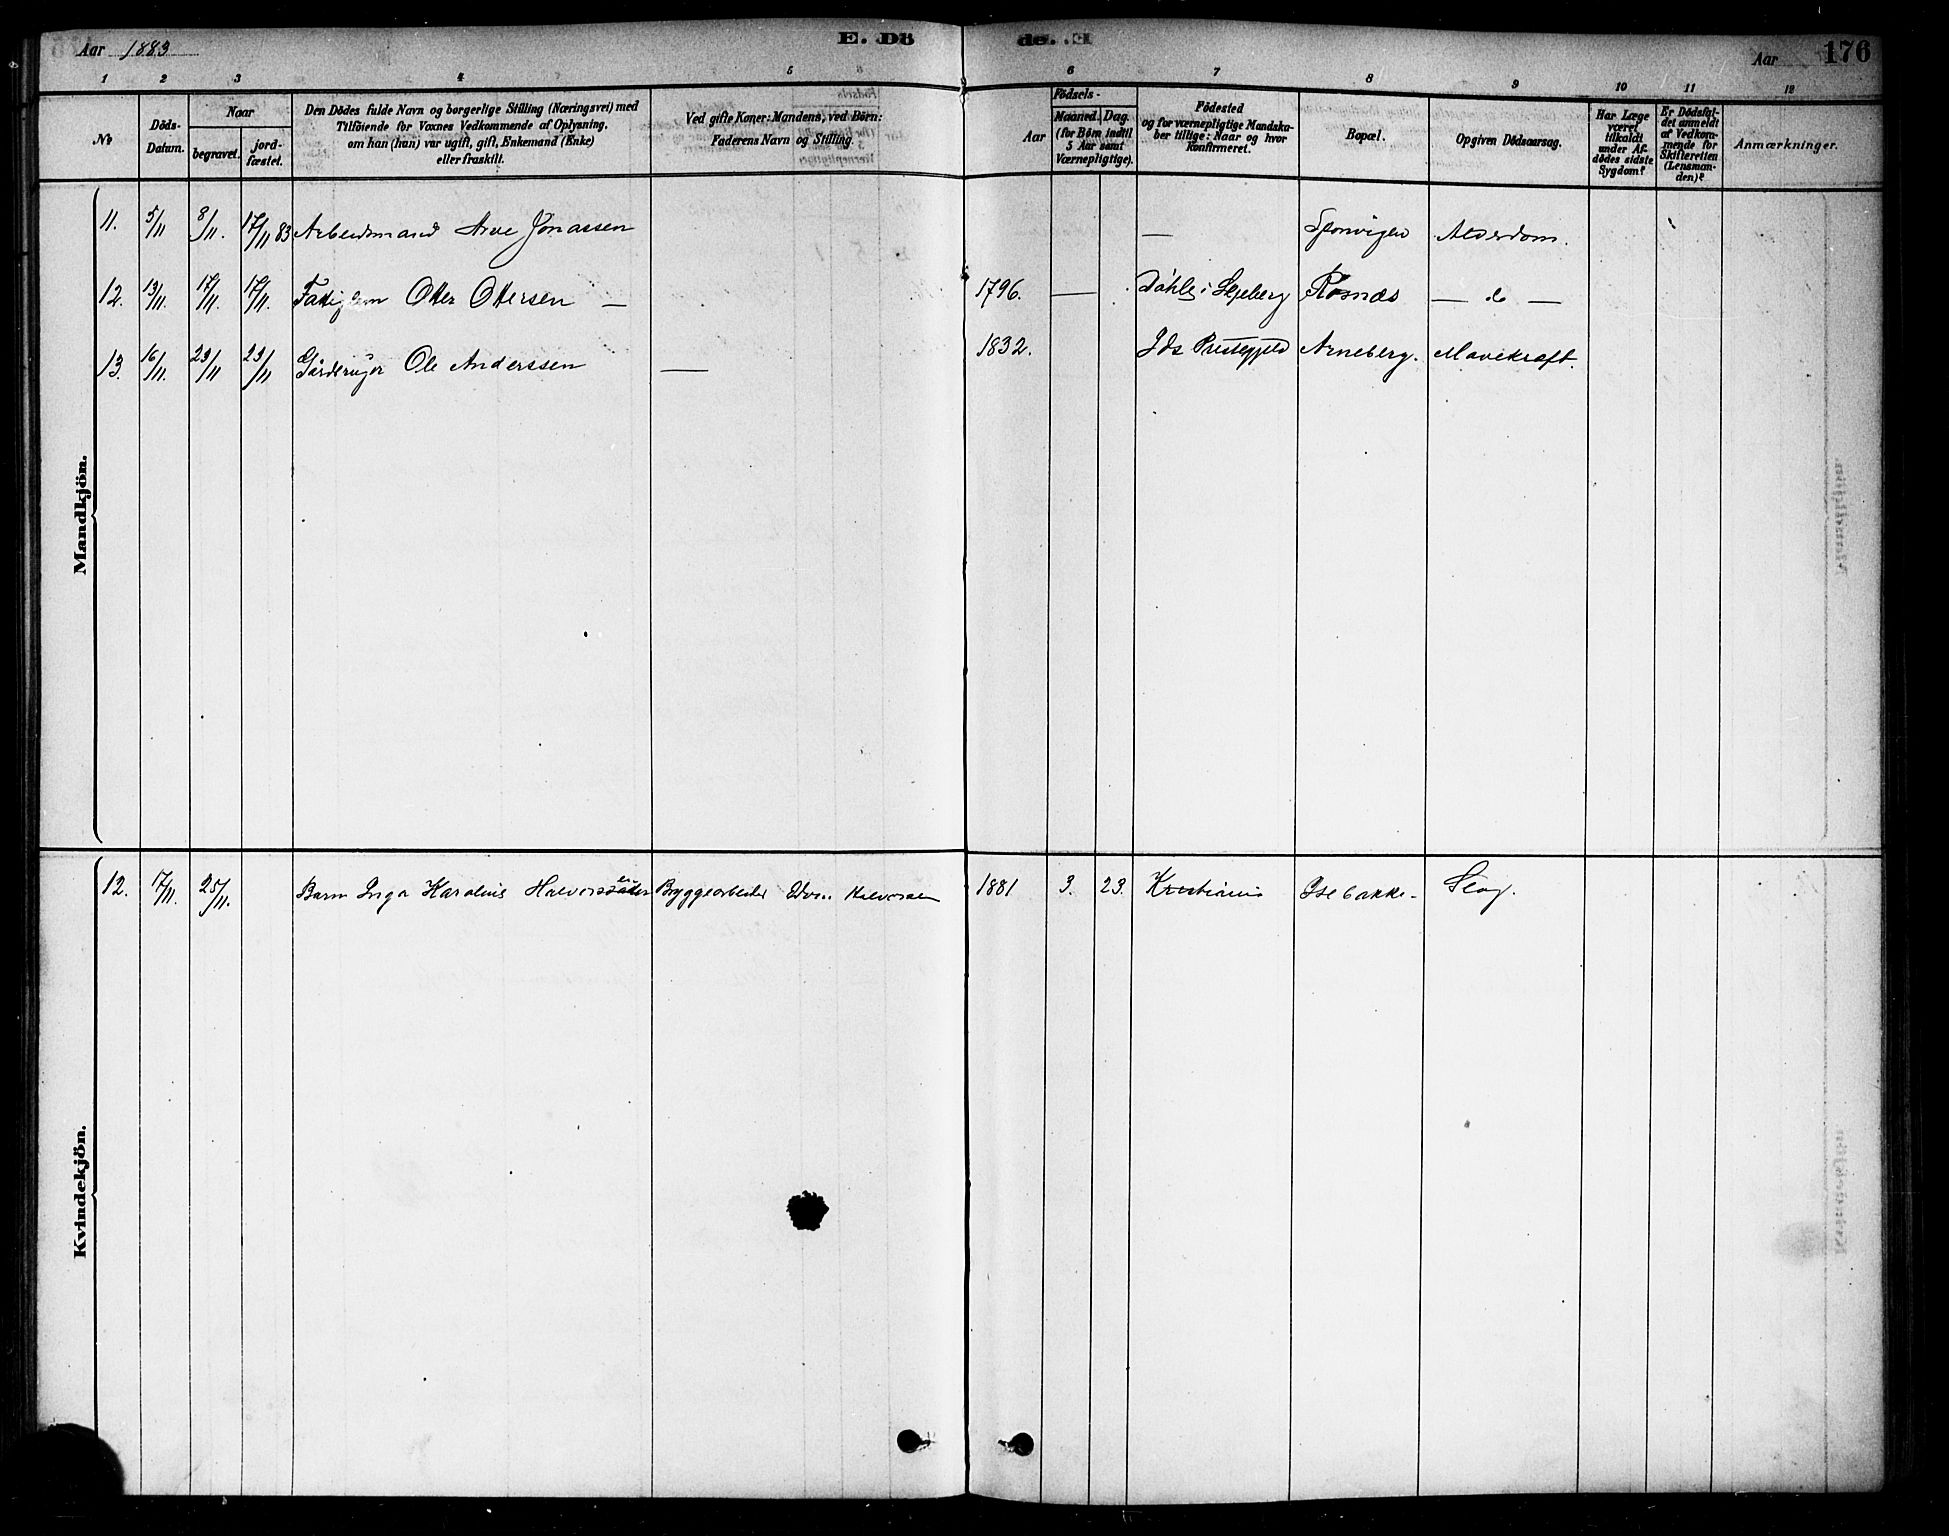 Aar 1883 E. Dö de. E. Aar 176
1 2 3 4 5 6 7 8 9 10 11 12
No
Döds-Datum.
Naar
begravet.
jord-fæstet.
Den Dödes fulde Navn og borgerlige Stilling (Næringsvei) med
Tilföiende for Voxnes Vedkommende af Oplysning,
om han (hun) var ugift, gift, Enkemand (Enke)
eller fraskilt.
Ved gifte Koner: Mandens, ved Börn:
Faderens Navn og Stilling.
Aar
Födsels-
Maaned. Dag.
(for Börn indtil
5 Aar samt
Værnepligtige).
Födested
og for værnepligtige Mandska-
ber tillige: Naar og hvor
Konfirmeret.
Bopæl.
Opgiven Dödsaarsag.
Har Læge
været
tilkaldt
under Af-
dödes sidste
Sygdom?
Er Dödsfal-
det anmeldt
af Vedkom-
mende for
Skifteretten
(Lensman-
den)?
Anmærkninger.
Mandkjön.
11. 5/11 8/11. 17/11 83 Arbeidsmand Arve Jonassen — Sponvigen Alderdom.
12. 13/11. 17/11. 17/11. Fattiglem Otter Ottersen — 1796. — Dahle i Skjeberg Røsnæs — do —
13. 16/11. 23/11 23/11 Gårdbruger Ole Anderssen — 1832. Ids Prestegjeld Arneberg. Mavekræft.
Kvindekjön.
12. 17/11. 25/11. Barn Inga Karoline Halvorsdatter Byggearbeider Halvorsen 1881 3. 23. Kristiania Isebakke - Slag.